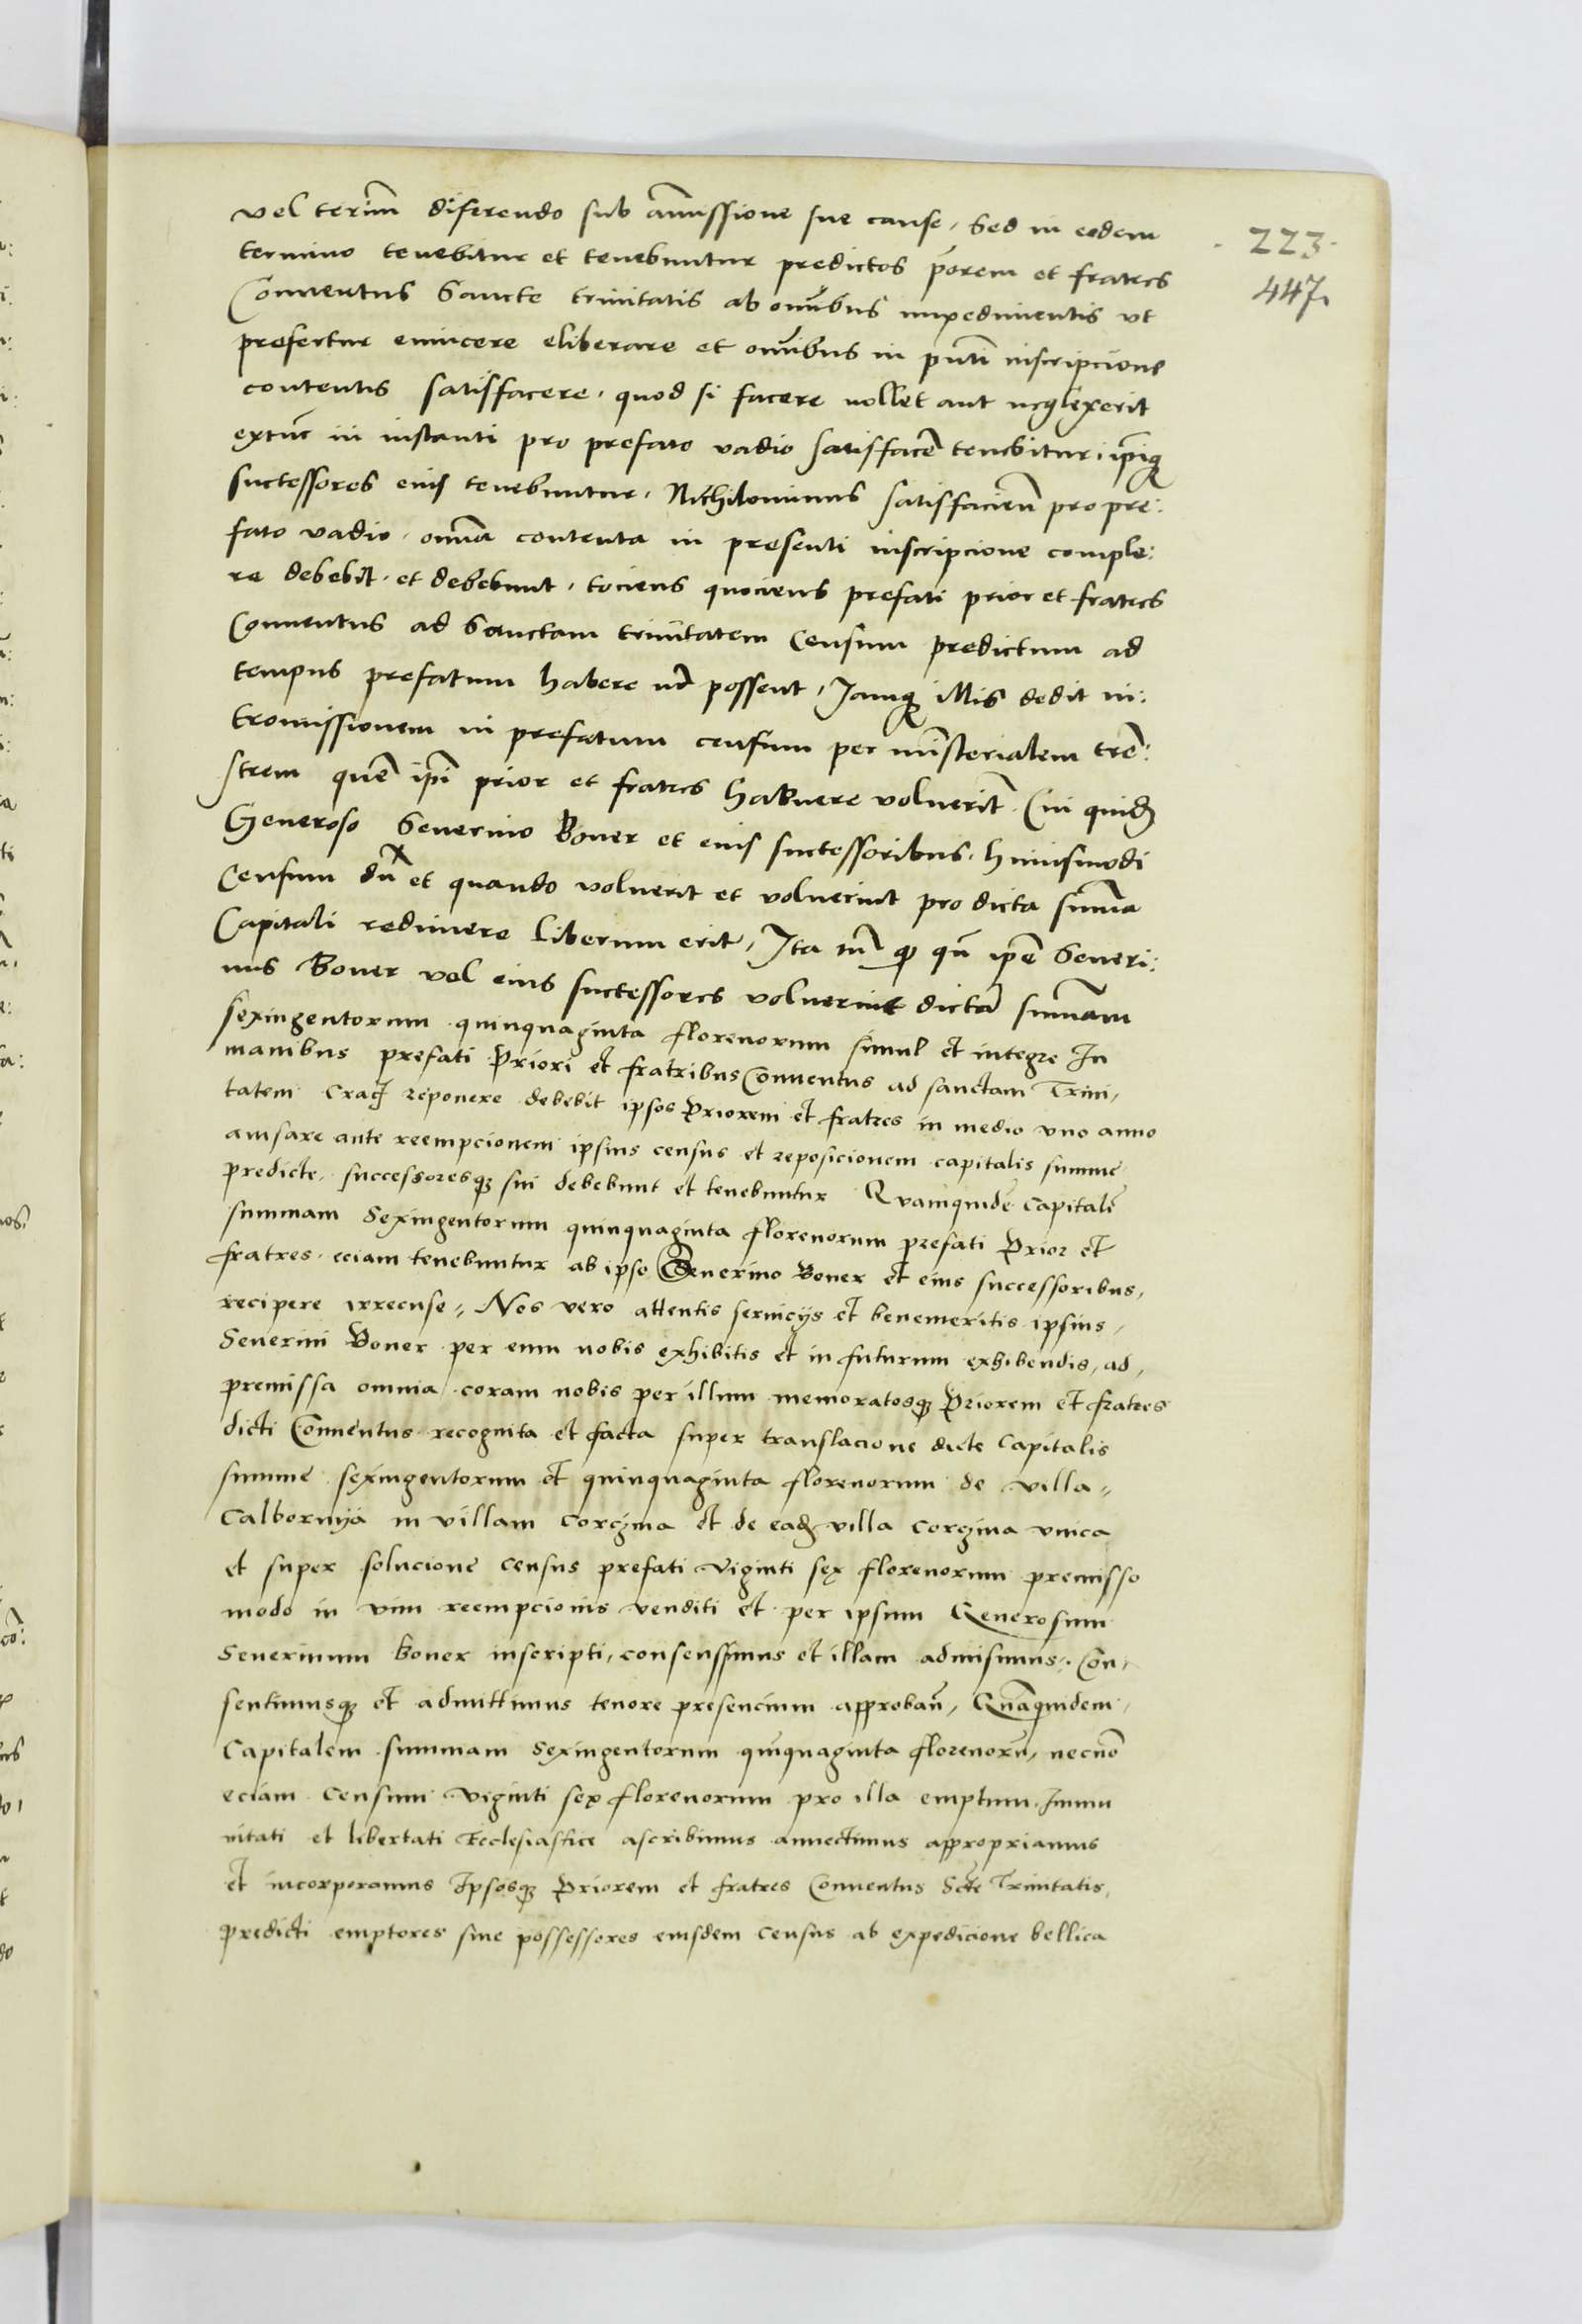 vel terim̄ diferendo sub am̄issione sue cause, Sed in eodem
termino tenebitur et tenebuntur predictos p̄orem et fratres
Conventus Sancte trinitatis ab om̄ibus impedimentis ut
prefertur evincere eliberare et om̄ibus in pn̄ti inscripcione
contentis satisfacere, quod si facere nollet aut neglexerit
extūc in instanti pro prefato vadio satisfacē tenebitur, ip̄iqꝫ
successores eius tenebuntur, Nichilominus satisfacien̄ pro pre:
fato vadio, om̄ia contenta in presenti inscripcione comple:
re debebit, et debebunt, tociens quociens prefati prior et fratres
Conventus ad Sanctam trinitatem Censum predictum ad
tempus prefatum habere possent, Jamqꝫ illis dedit in:
tromissionem in prefatum censum per ministerialem trē:
strem quē ip̄i prior et fratres habuere voluerit̄. Cui quid̄
Generoso Severino Boner et eius successoribus, huiusmodi
Censum dū et quando voluerit et voluerint pro dicta sum̄a
Capitali redimere liberum erit, Ita tn̄ ꝙ qn̄ ipē Severi:
nus Boner vel eius successores voluerint dictā sum̄am
sexingentorum quinquaginta florenorum simul et integre In
manibus prefati Priori et fratribus Conventus ad sanctam Trini,
tatem Crac̄ reponere debebit ipsos Priorem et fratres in medio uno anno
avisare ante reempcionem ipsius census et reposicionem capitalis summe
predicte, successoresqꝫ sui debebunt et tenebuntur Quamquidē capitalē
summam Sexingentorum quinquaginta florenorum prefati Prior et
fratres eciam tenebuntur ab ipso Severino Boner et eius successoribus,
recipere irrecuse,, Nos vero attentis serviciis et benemeritis ipsius,
Severini Boner per eum nobis exhibitis et in futurum exhibendis, ad,
premissa omnia coram nobis per illum memoratosqꝫ Priorem et fratres
dicti Conventus recognita et facta super translacione dicte capitalis
summe sexingentorum et quinquaginta florenorum de villa,,
Calbornya in villam Corczina et de ead̄ villa Corczina unica
et super solucione census prefati viginti sex florenorum premisso
modo in vim reempcionis venditi et per ipsum Generosum
Severinum Boner inscripti, consensimus et illam admisimus, Con,
sentimusqꝫ et admittimus tenore presencium approban̄, Quāquidem
Capitalem summam Sexingentorum quinquaginta florenorū, necnō
eciam Censum viginti sex florenorum pro illa emptum Immu
nitati et libertati Ecclesiastice ascribimus annectimus appropriamus
et incorporamus Ipsosqꝫ Priorem et fratres Conventus Sctē Trinitatis,
predicti emptores sive possessores eiusdem census ab expedicione bellica
223
447